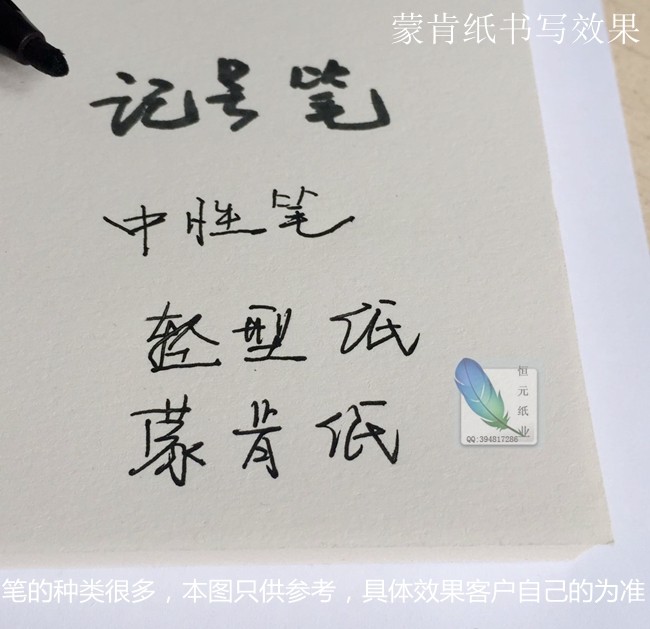 蒙肯纸书写效果
记号笔
中性笔
轻型纸
蒙肯纸
恒元纸业
QQ:394817286
笔的种类很多，本图只供参考，具体效果客户自己的为准